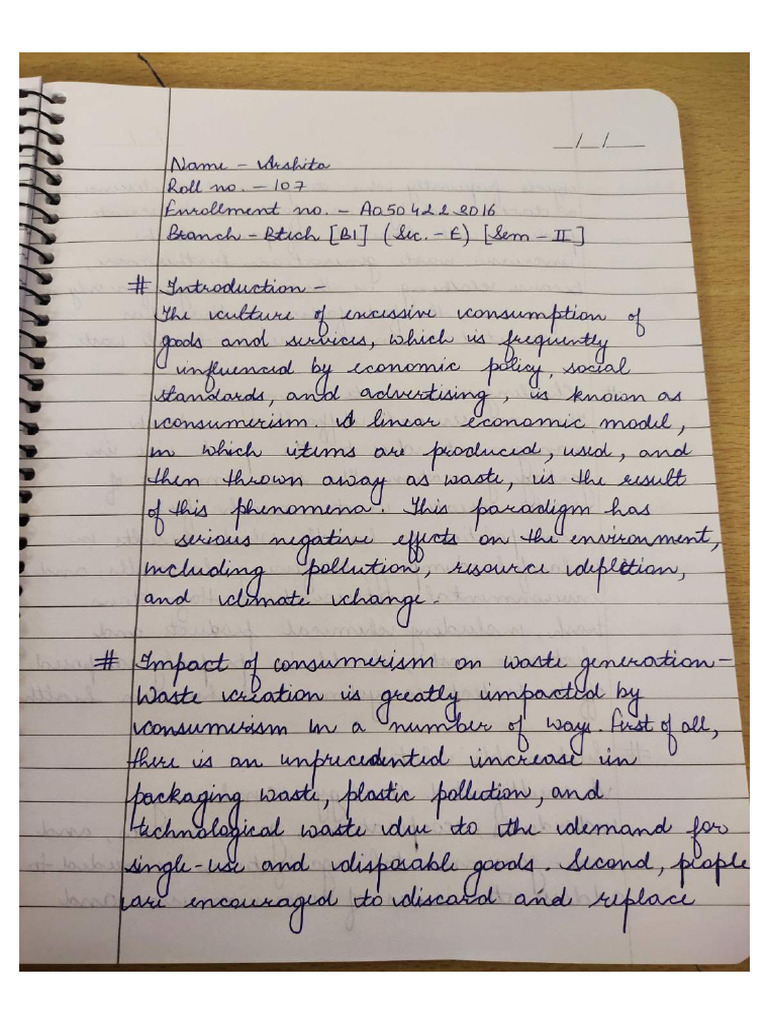 _/_/__
Name - Arshita
Roll no. - 107
Enrollment no. - A050422 2016
Branch - Btech [BI] (Sec. - E) [Sem - II]
# Introduction -
The culture of excessive consumption of
goods and services, which is frequently
influenced by economic policy, social
standards, and advertising, is known as
consumerism. A linear economic model,
in which items are produced, used, and
then thrown away as waste, is the result
of this phenomena. This paradigm has
serious negative effects on the environment,
including pollution, resource depletion,
and climate change.
# Impact of consumerism on waste generation-
Waste creation is greatly impacted by
consumerism in a number of ways. First of all,
there is an unprecedented increase in
packaging waste, plastic pollution, and
technological waste due to the demand for
single-use and disposable goods. Second, people
are encouraged to discard and replace